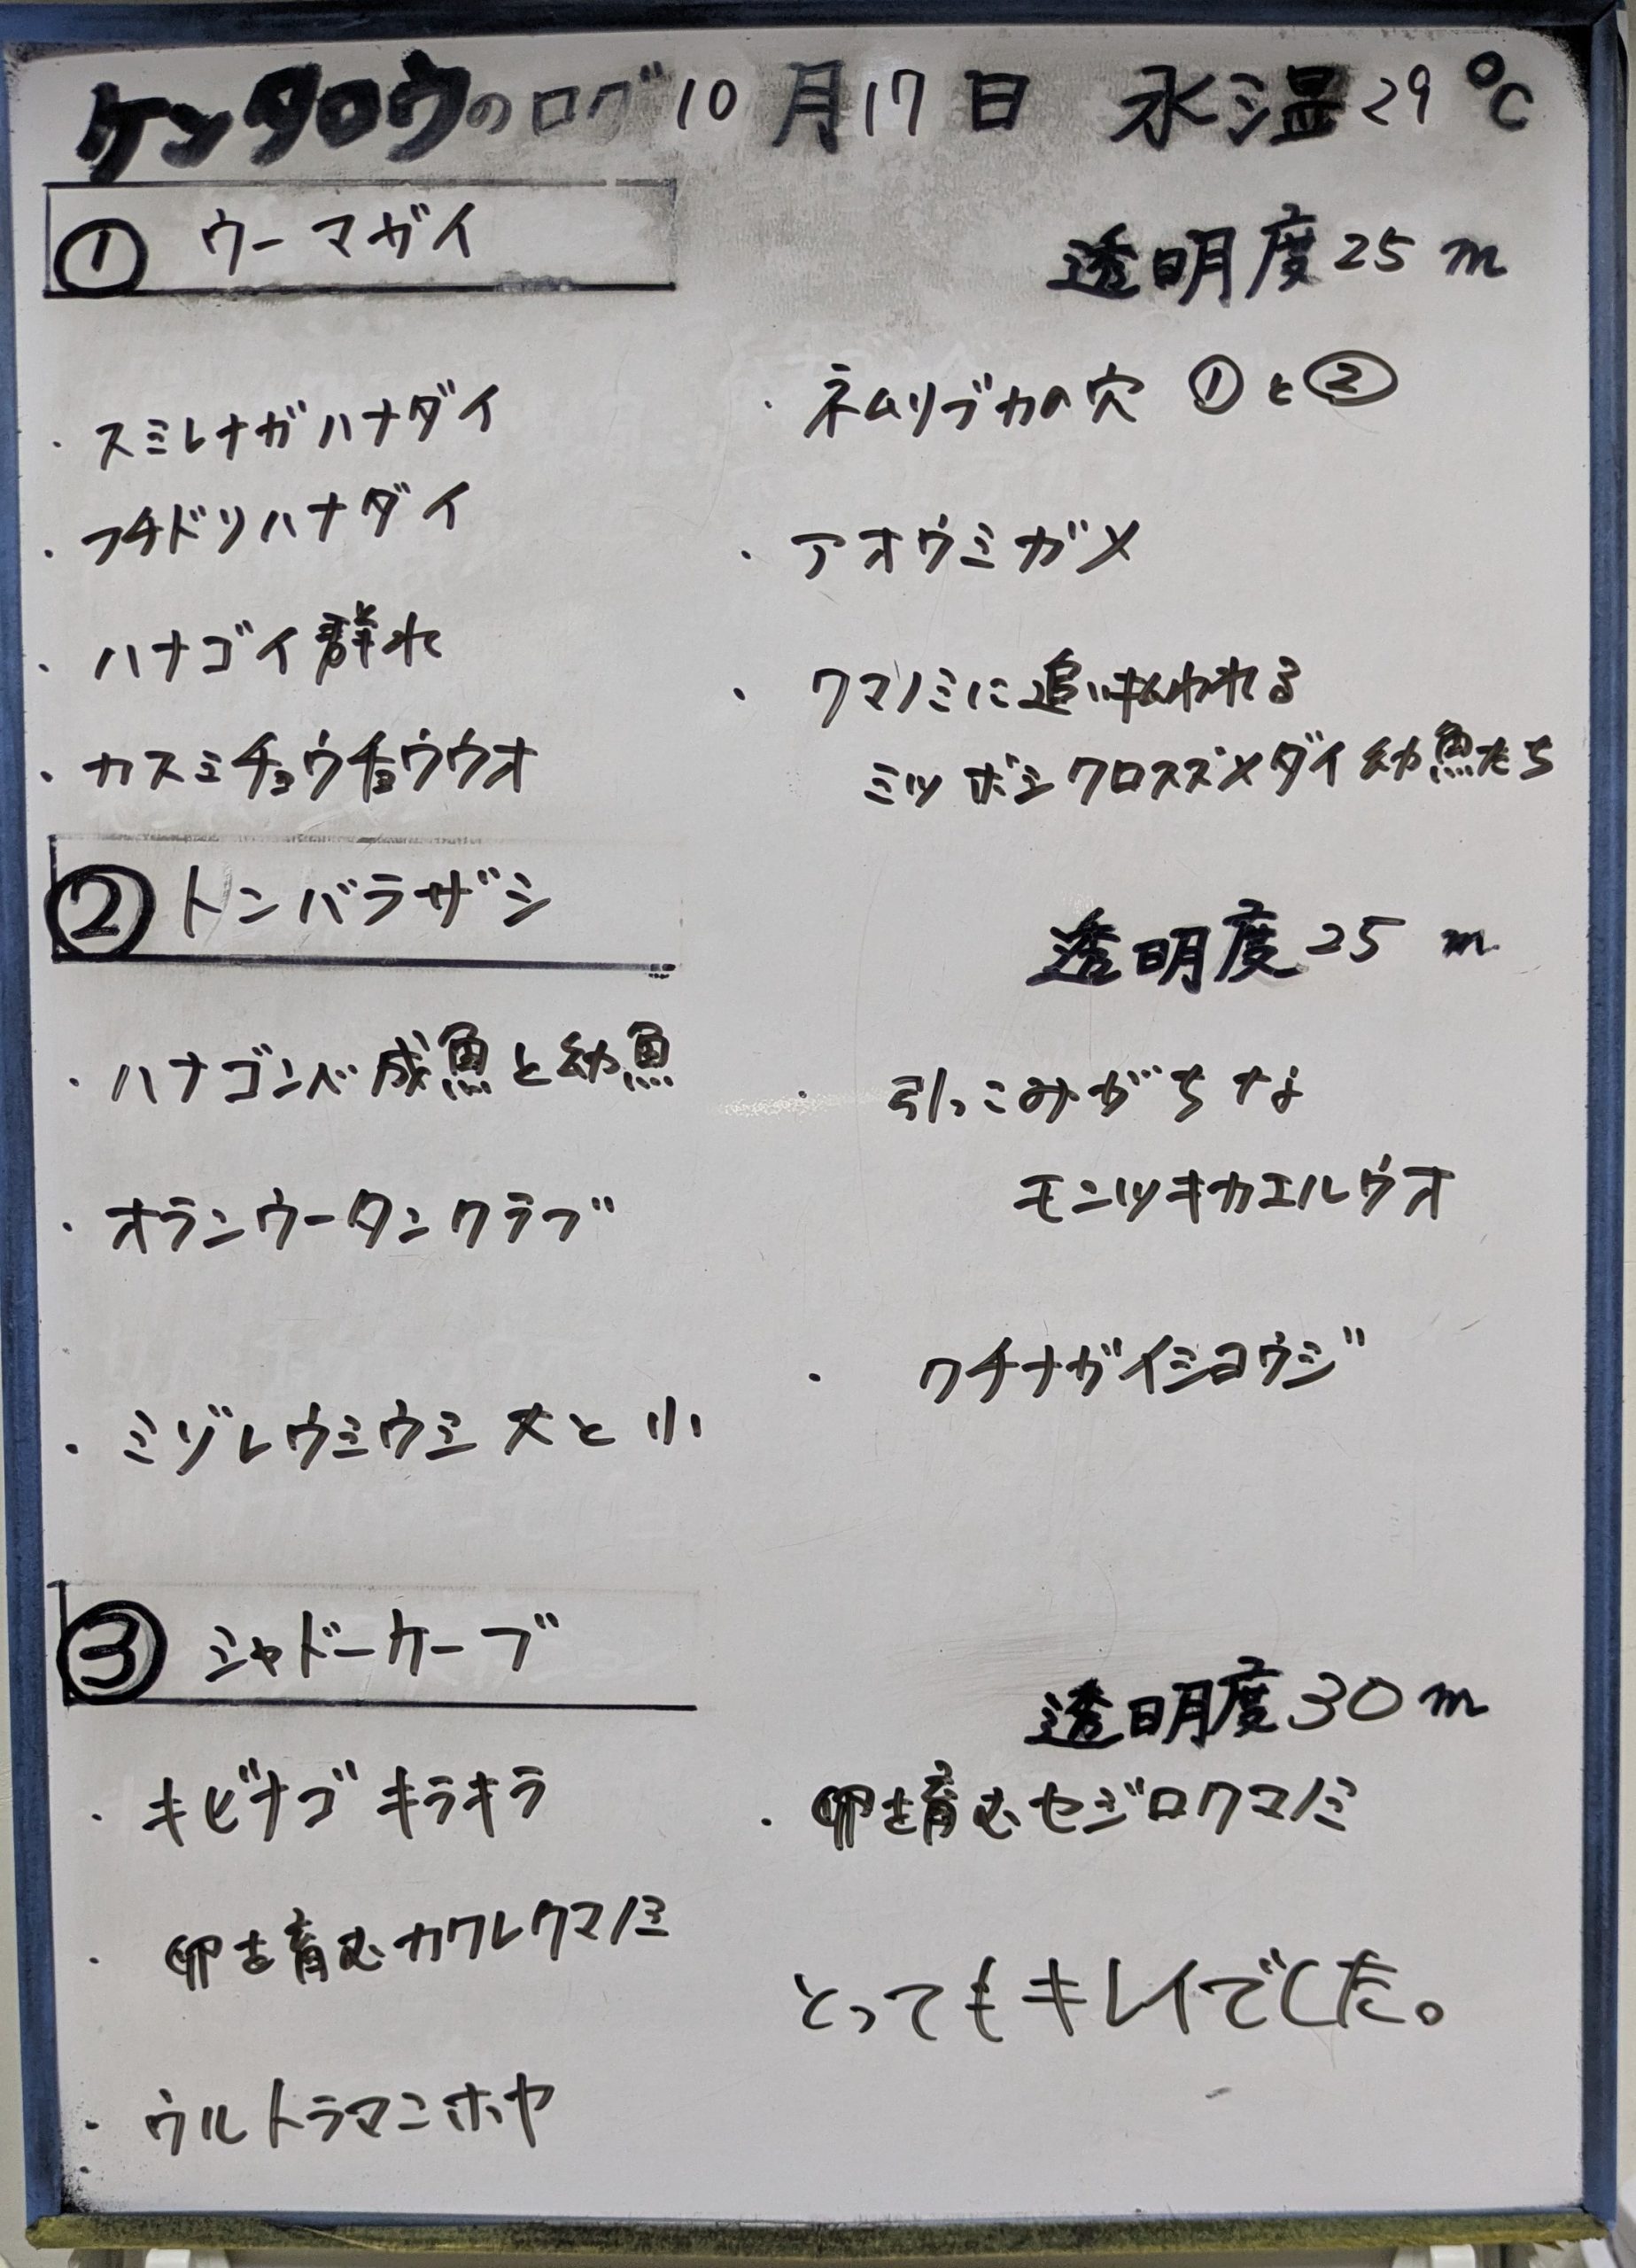 ケンタロウのログ 10月17日 水温29℃
① ウーマガイ
透明度25m
・スミレナガハナダイ
・フチドリハナダイ
・ハナゴイ群れ
・カスミチョウチョウウオ
・ネムリブカの穴 ①と②
・アオウミガメ
・クマノミに追い払われる
ミツボシクロスズメダイ幼魚たち
② トンバラザシ
透明度25m
・ハナゴンベ成魚と幼魚
・オランウータンクラブ
・ミゾレウミウミ大と小
・引っこみがちな
モンツキカエルウオ
・クチナガイシヨウジ
③ シャドーケーブ
透明度30m
・キビナゴキラキラ
・卵を育むカクレクマノミ
・ウルトラマンホヤ
・卵を育むセジロクマノミ
とってもキレイでした。